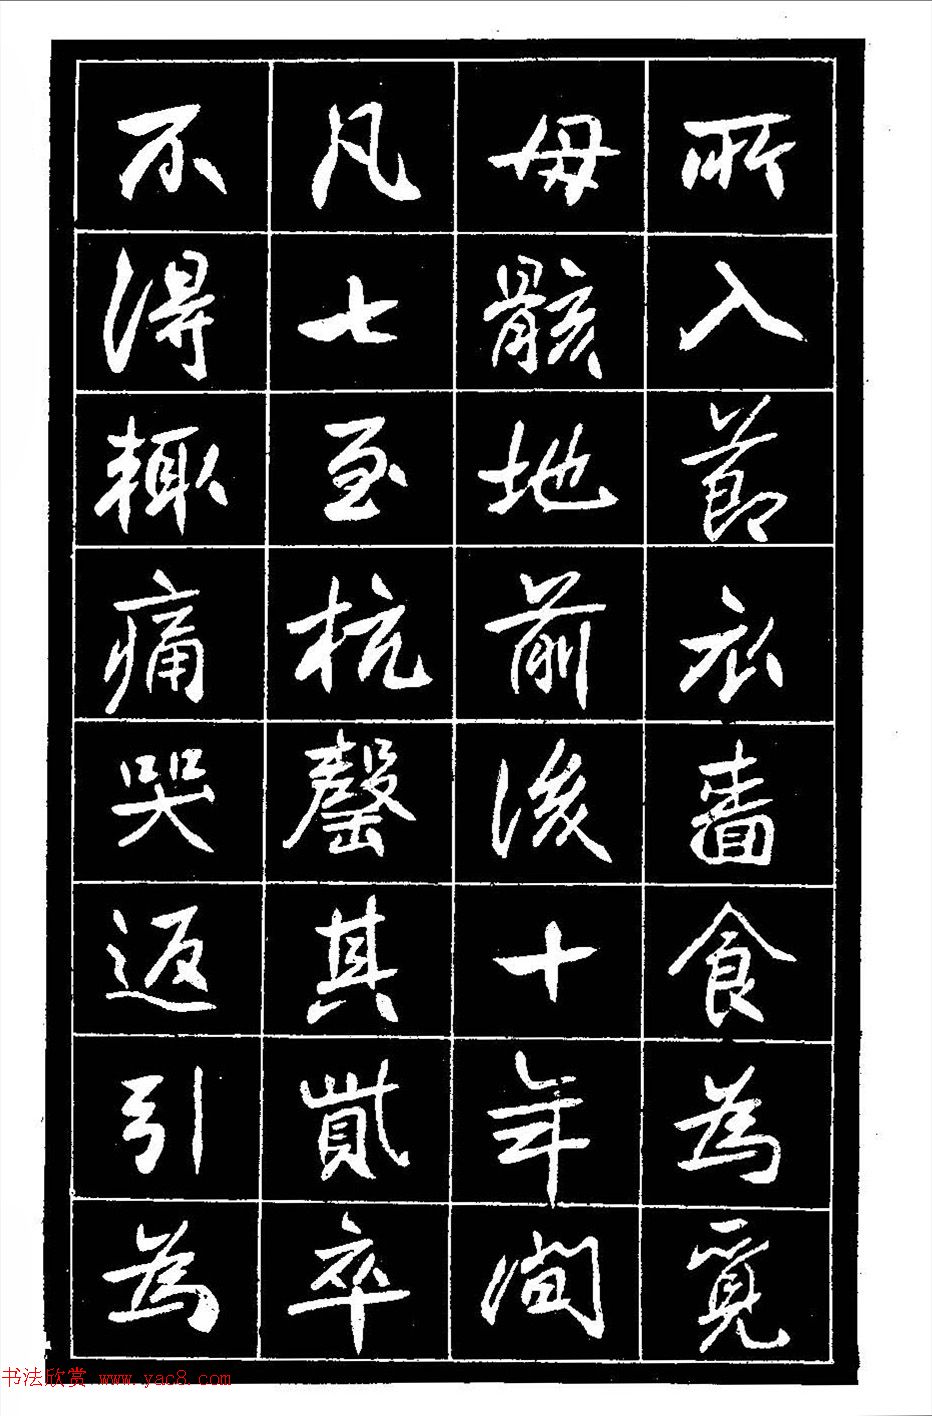 所入節衣嗇食為覓
母骸地前後十年間
凡七至杭罄其貲卒
不得輒痛哭返引為
书法欣赏 www.yac8.com